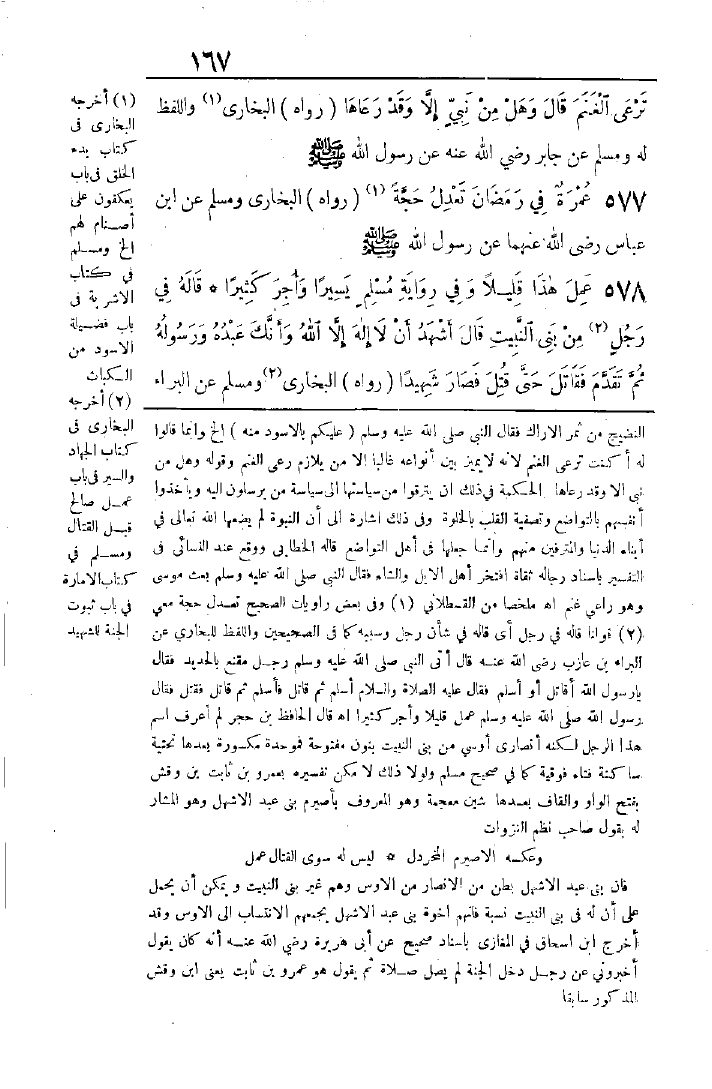 ١٦٧
تَرْعَى ٱلْغَنَمَ قَالَ وَهَلْ مِنْ نَبِيٍّ إِلَّا وَقَدْ رَعَاهَا ( رواه ) البخارى (١) واللفظ
له ومسلم عن جابر رضي الله عنه عن رسول الله ﷺ
٥٧٧ عُمْرَةٌ فِي رَمَضَانَ تَعْدِلُ حَجَّةً (١) ( رواه ) البخارى ومسلم عن ابن
عباس رضى الله عنهما عن رسول الله ﷺ
٥٧٨ عَمِلَ هٰذَا قَلِيلاً وَفِي رِوَايَةِ مُسْلِمٍ يَسِيرًا وَأُجِرَ كَثِيرًا * قَالَهُ فِي
رَجُلٍ (٢) مِنْ بَنِى ٱلنَّبِيتِ قَالَ أَشْهَدُ أَنْ لَا إِلٰهَ إِلَّا ٱللّٰهُ وَأَنَّكَ عَبْدُهُ وَرَسُولُهُ
ثُمَّ تَقَدَّمَ فَقَاتَلَ حَتَّى قُتِلَ فَصَارَ شَهِيدًا ( رواه ) البخارى (٢) ومسلم عن البراء
(١) أخرجه
البخارى فى
كتاب بدء
الخلق فى باب
يعكفون على
أصنام لهم
الخ ومسلم
في كتاب
الاشربة فى
باب فضيلة
الاسود من
الكباث
(٢) أخرجه
البخارى فى
كتاب الجهاد
والسير فى باب
عمل صالح
قبل القتال
ومسلم في
كتاب الامارة
في باب ثبوت
الجنة للشهيد
النضيج من ثمر الاراك فقال النبي صلى الله عليه وسلم ( عليكم بالاسود منه ) الخ وانما قالوا
له أكنت ترعى الغنم لانه لا يميز بين أنواعه غالبا الا من يلازم رعى الغنم وقوله وهل من
نبى الا وقد رعاها الحكمة في ذلك ان يترقوا من سياستها الى سياسة من يرسلون اليه ويأخذوا
أنفسهم بالتواضع وتصفية القلب بالخلوة وفى ذلك اشارة الى أن النبوة لم يضعها الله تعالى في
أبناء الدنيا والمترفين منهم وانما جعلها فى أهل التواضع قاله الخطابى ووقع عند النسائى فى
التفسير باسناد رجاله ثقاة افتخر أهل الابل والشاء فقال النبي صلى الله عليه وسلم بعث موسى
وهو راعي غنم اه ملخصا من القسطلاني (١) وفى بعض راويات الصحيح تعدل حجة معي
(٢) قولنا قاله في رجل أى قاله في شأن رجل وسببه كما فى الصحيحين واللفظ للبخاري عن
البراء بن عازب رضى الله عنه قال أتى النبي صلى الله عليه وسلم رجل مقنع بالحديد فقال
يارسول الله أقاتل أو أسلم فقال عليه الصلاة والسلام أسلم ثم قاتل فأسلم ثم قاتل فقتل فقال
رسول الله صلى الله عليه وسلم عمل قليلا وأجر كثيرا اه قال الحافظ بن حجر لم أعرف اسم
هذا الرجل لكنه أنصارى أوسي من بنى النبيت بنون مفتوحة فموحدة مكسورة بعدها تحتية
ساكنة فتاء فوقية كما في صحيح مسلم ولولا ذلك لا مكن تفسيره بعمرو بن ثابت بن وقش
بفتح الواو والقاف بعدها شين معجمة وهو المعروف بأصيرم بنى عبد الاشهل وهو المشار
له بقول صاحب نظم الغزوات
وعكسه الاصيرم المخردل * ليس له سوى القتال عمل
فان بنى عبد الاشهل بطن من الانصار من الاوس وهم غير بنى النبيت ويمكن أن يحمل
على أن له فى بنى النبيت نسبة فانهم اخوة بنى عبد الاشهل يجمعهم الانتساب الى الاوس وقد
أخرج ابن اسحاق في المغازى باسناد صحيح عن أبى هريرة رضي الله عنه أنه كان يقول
أخبروني عن رجل دخل الجنة لم يصل صلاة ثم يقول هو عمرو بن ثابت يعنى ابن وقش
المذكور سابقا